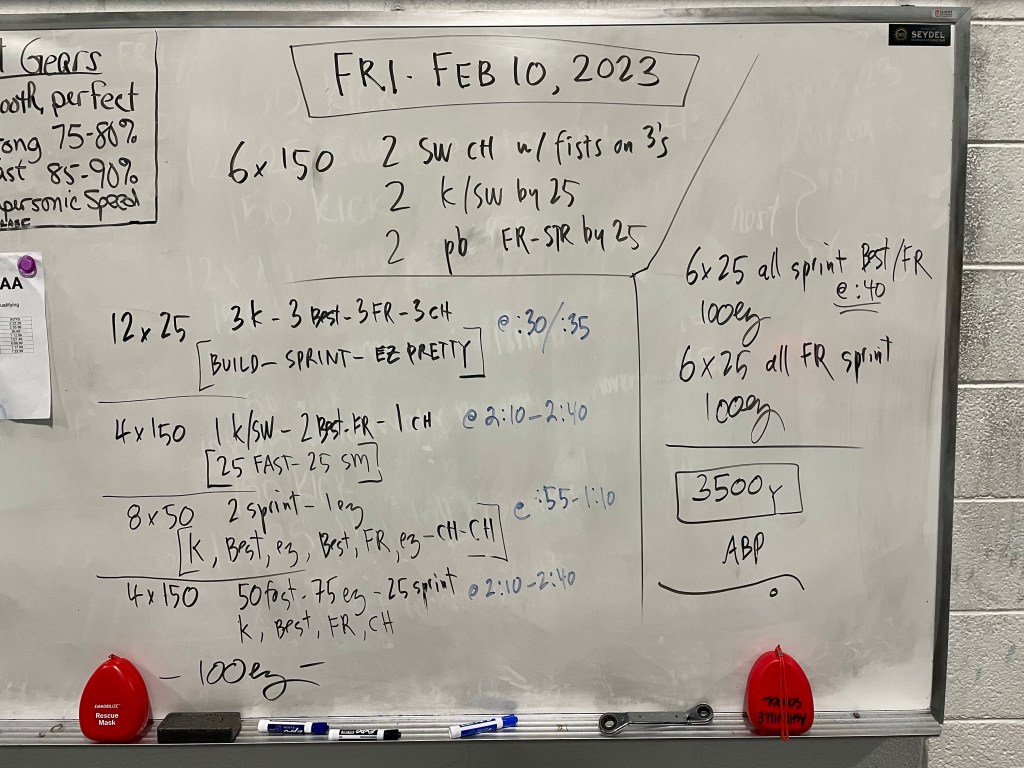 Gears
ooth, perfect
ong 75-80%
ast 85-90%
personic Speed
SEYDEL
FRI. FEB 10, 2023
6 x 150 2 SW CH w/ fists on 3's
2 k/SW by 25
2 pb FR-STR by 25
12 x 25 3k - 3 Best - 3 FR - 3 CH @ :30/:35
[BUILD - SPRINT - EZ PRETTY]
4 x 150 1 k/SW - 2 Best-FR - 1 CH @ 2:10-2:40
[25 FAST - 25 SM]
8 x 50 2 sprint - 1 ez @ :55-1:10
[K, Best, ez, Best, FR, ez - CH-CH]
4 x 150 50 fast - 75 ez - 25 sprint @ 2:10-2:40
k, Best, FR, CH
- 100 ez -
6 x 25 all sprint Best/FR
@ :40
100 ez
6 x 25 all FR sprint
100 ez
3500 Y
ABP
AA
Rescue
Mask